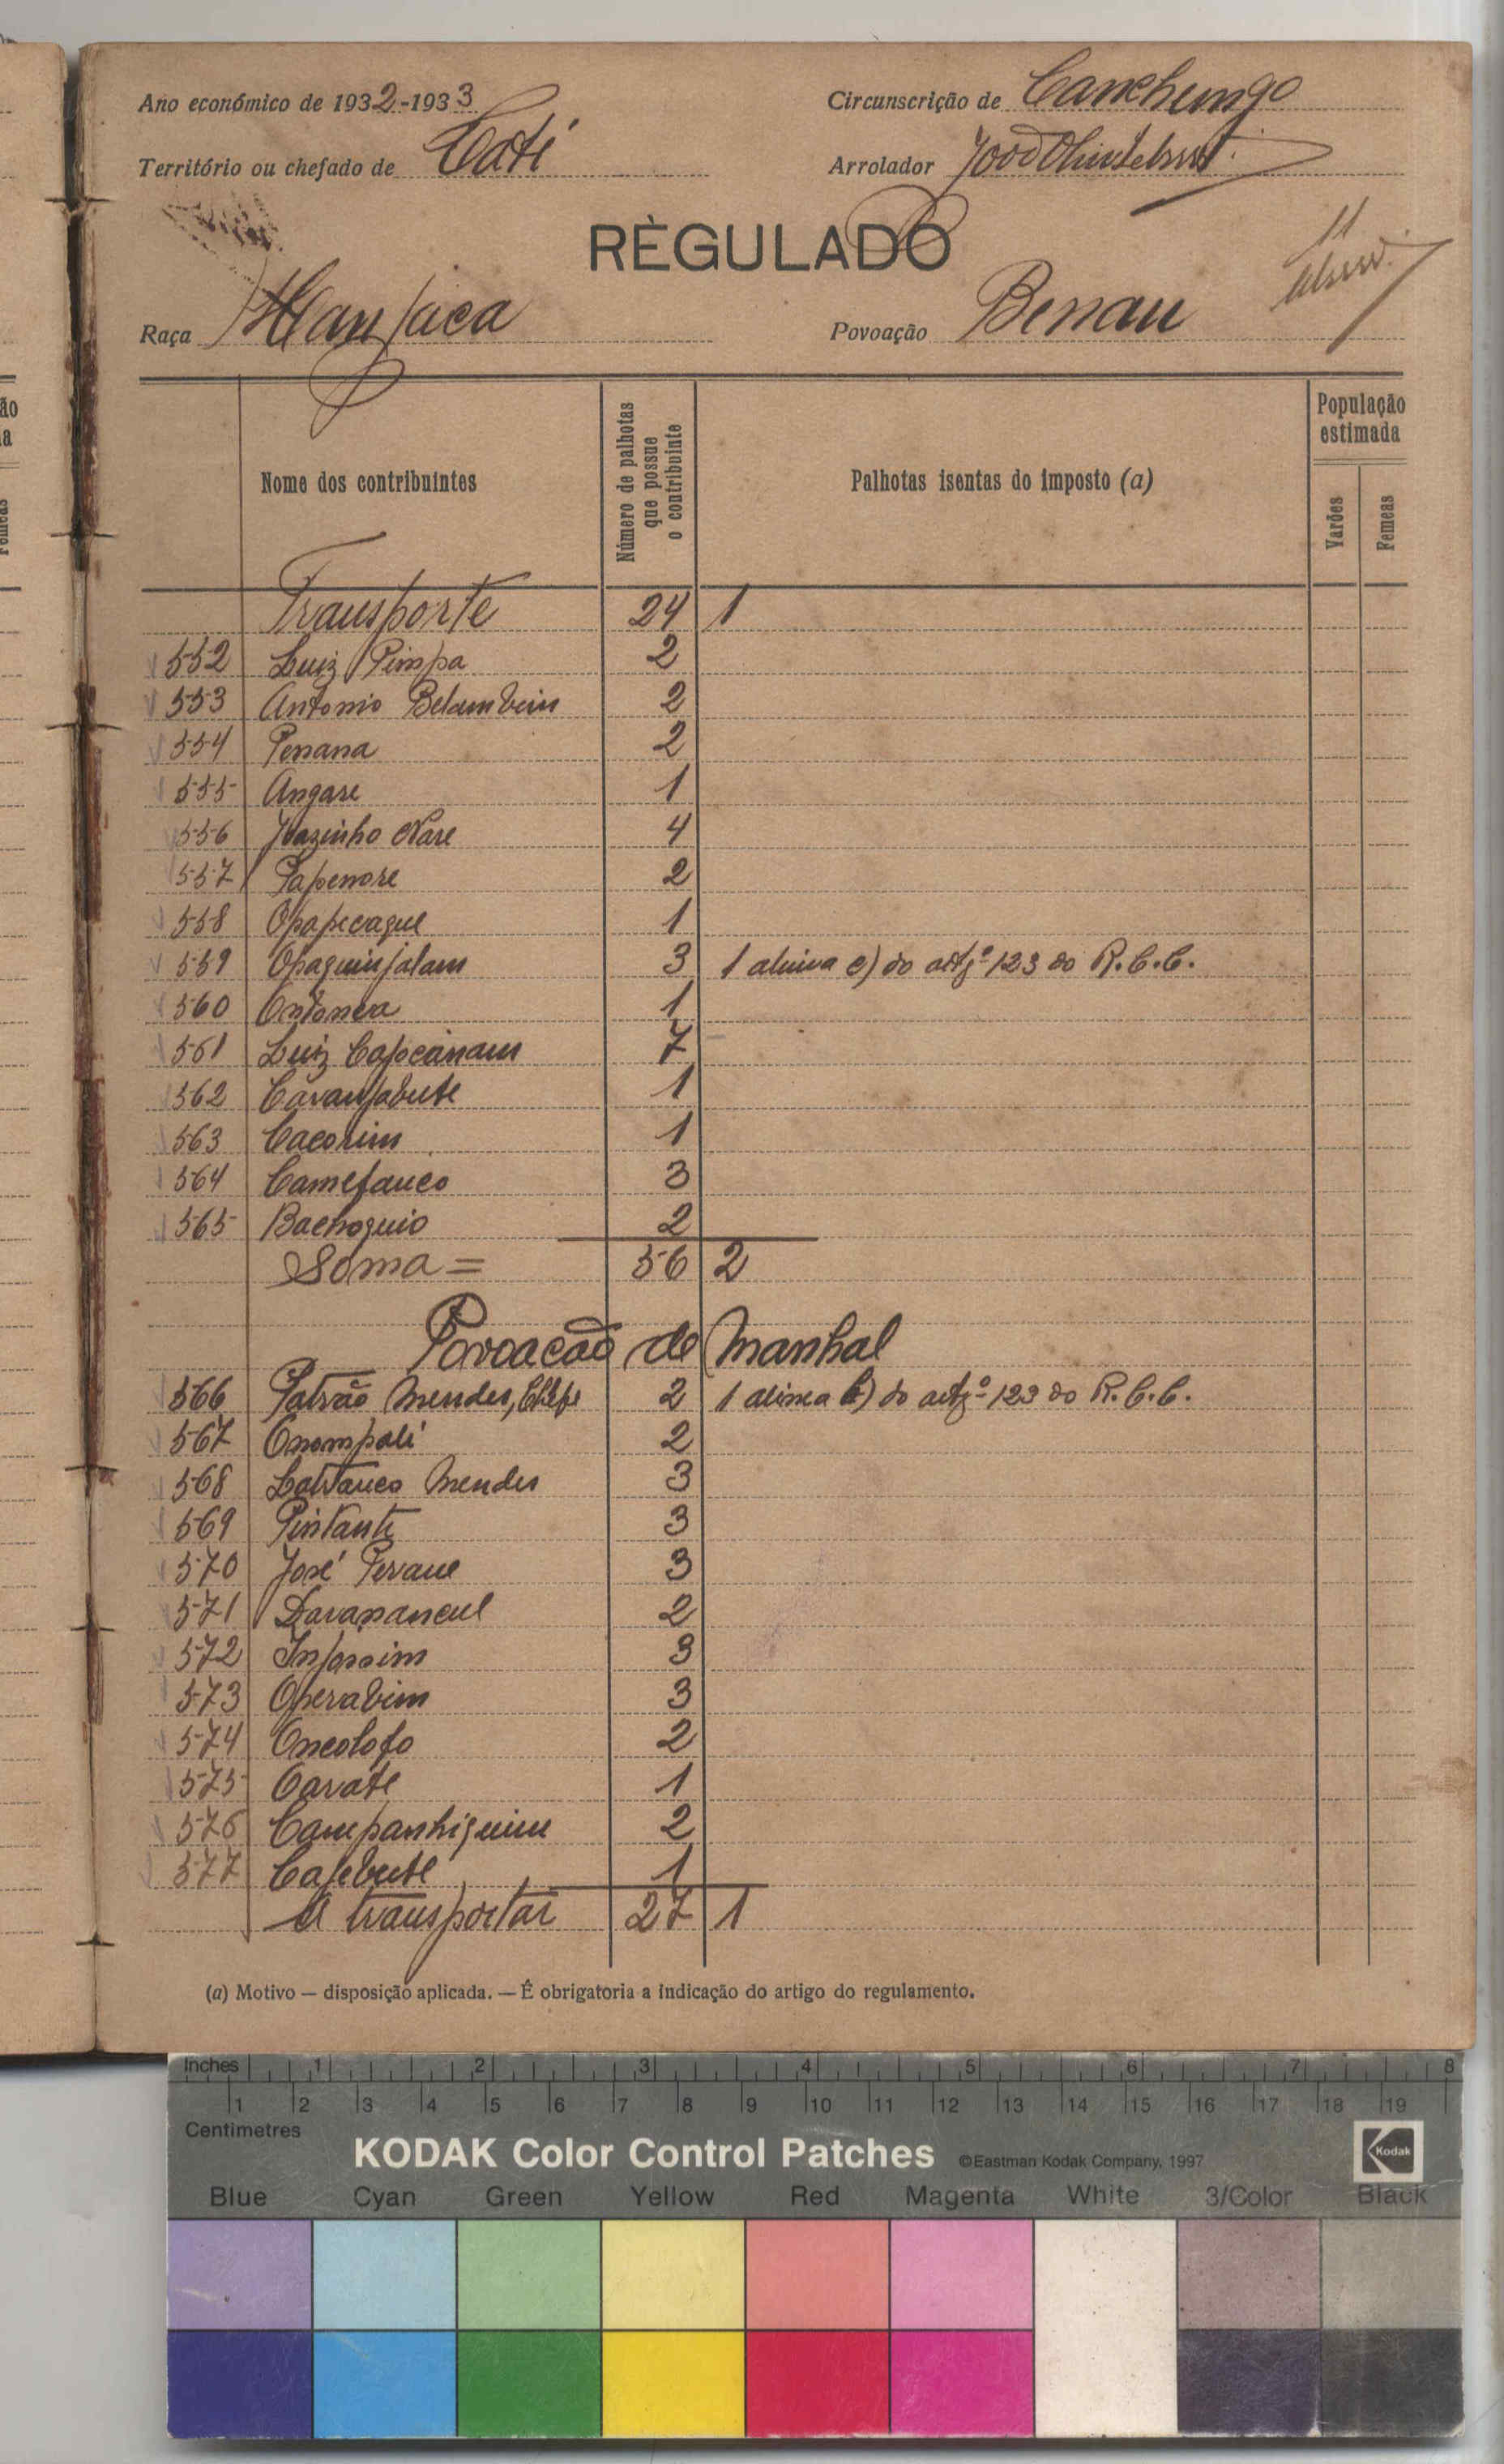 Ano económico de 1932-1933
Circunscrição de Canchungo
Território ou chefado de Cati
Arrolador
RÉGULADO
Raça Manjaca
Povoação Benau
11
Nome dos contribuintes
Número de palhotas que possue o contribuinte
Palhotas isentas do imposto (a)
População estimada
Varões
Femeas
Transporte 24 1
552 Luiz Pimpa 2
553 Antonio Belambim 2
554 Penana 2
555 Angare 1
556 Joazinho Nare 4
557 Papenore 2
558 Opapecaque 1
559 Opaquinjalam 3 1 alinea c) do artgº 123 do R.C.C.
560 Ontonca 1
561 Luiz Capecanam 7
562 Cavanjabute 1
563 Cacorim 1
564 Camefanco 3
565 Bachoquio 2
Soma = 56 2
Povoação de Manhal
566 Patrão Mendes, Chefe 2 1 alinea b) do artgº 123 do R.C.C.
567 Onompali 2
568 Mendes 3
569 Pintante 3
570 José Pervane 3
571 Davanancul 2
572 3
573 Operabim 3
574 Oncolofo 2
575 Carate 1
576 Campanhiquim 2
577 Cajebute 1
A transportar 27 1
(a) Motivo — disposição aplicada. — É obrigatoria a indicação do artigo do regulamento.
Inches 1 2 3 4 5 6 7 8
1 2 3 4 5 6 7 8 9 10 11 12 13 14 15 16 17 18 19
Centimetres
KODAK Color Control Patches ©Eastman Kodak Company, 1997 Kodak
Blue Cyan Green Yellow Red Magenta White 3/Color Black